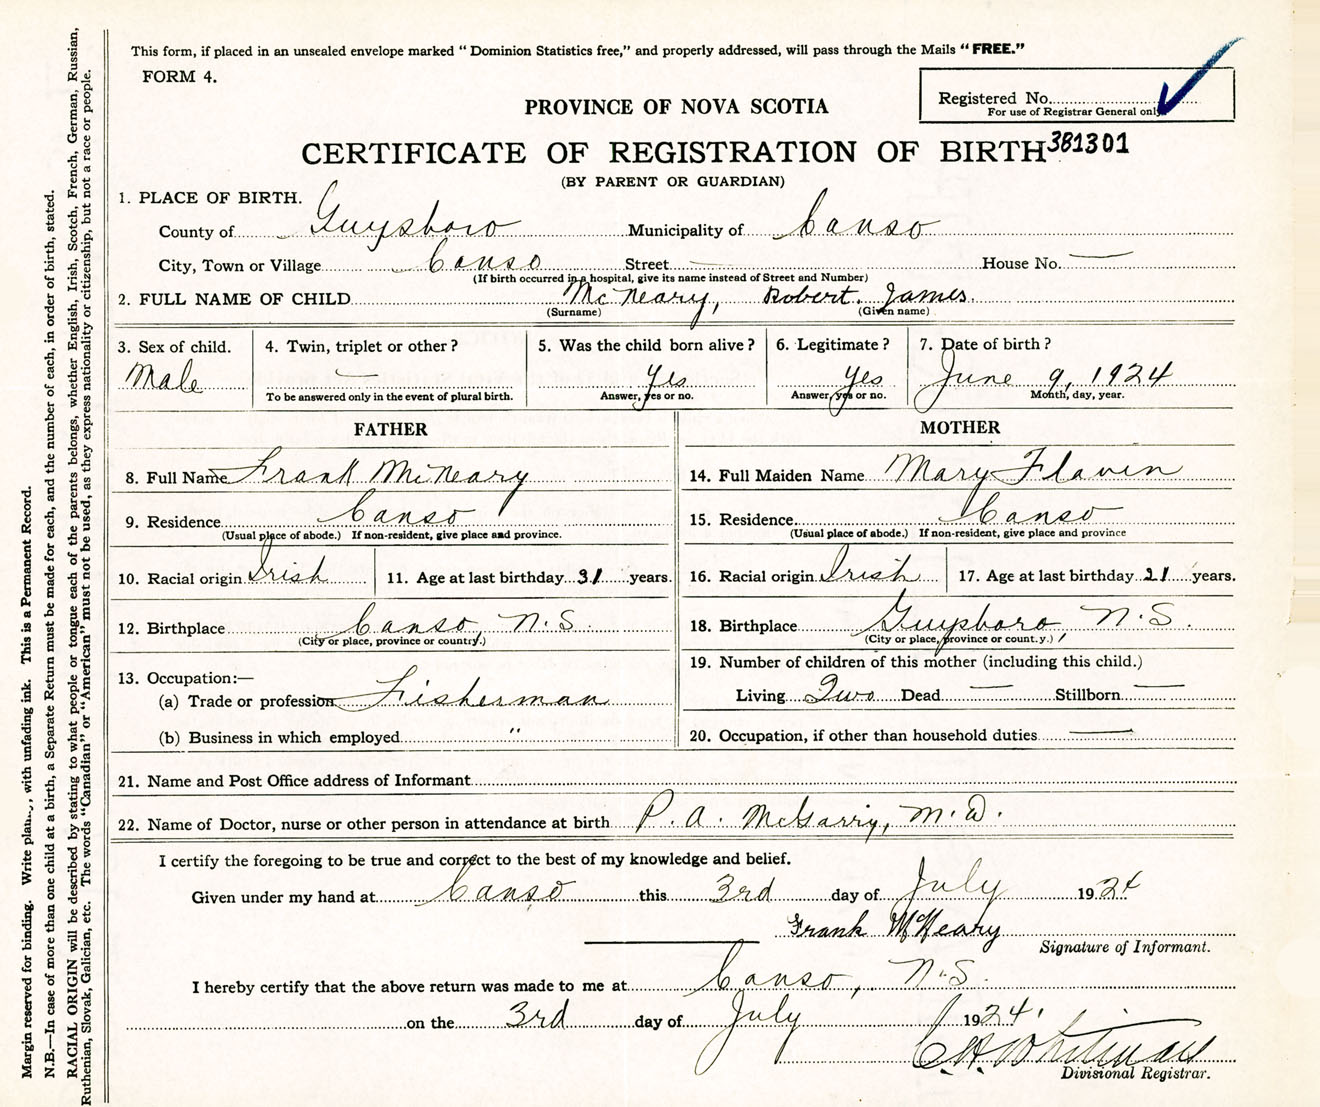 This form, if placed in an unsealed envelope marked “ Dominion Statistics free,” and properly addressed, will pass through the Mails “ FREE.”
FORM 4.
Registered No.
For use of Registrar General only
PROVINCE OF NOVA SCOTIA
CERTIFICATE OF REGISTRATION OF BIRTH 381301
(BY PARENT OR GUARDIAN)
1. PLACE OF BIRTH.
County of Guysboro Municipality of Canso
City, Town or Village Canso Street — House No. —
(If birth occurred in a hospital, give its name instead of Street and Number)
2. FULL NAME OF CHILD McNeary, Robert. James.
(Surname) (Given name)
3. Sex of child. 4. Twin, triplet or other ? 5. Was the child born alive ? 6. Legitimate ? 7. Date of birth ?
Male — Yes Yes June 9, 1924
To be answered only in the event of plural birth. Answer, yes or no. Answer, yes or no. Month, day, year.
FATHER MOTHER
8. Full Name Frank McNeary 14. Full Maiden Name Mary Flavin
9. Residence Canso 15. Residence Canso
(Usual place of abode.) If non-resident, give place and province. (Usual place of abode.) If non-resident, give place and province
10. Racial origin Irish 11. Age at last birthday 31 years. 16. Racial origin Irish 17. Age at last birthday 21 years.
12. Birthplace Canso, N.S. 18. Birthplace Guysboro, N.S.
(City or place, province or country.) (City or place, province or count.y.)
13. Occupation:— 19. Number of children of this mother (including this child.)
(a) Trade or profession Fisherman Living Two Dead — Stillborn —
(b) Business in which employed " 20. Occupation, if other than household duties —
21. Name and Post Office address of Informant
22. Name of Doctor, nurse or other person in attendance at birth P. A. McGarry, M.D.
I certify the foregoing to be true and correct to the best of my knowledge and belief.
Given under my hand at Canso this 3rd day of July 1924
Frank McNeary
Signature of Informant.
I hereby certify that the above return was made to me at Canso, N.S.
on the 3rd day of July 1924.
C.H. Whitman
Divisional Registrar.
Margin reserved for binding. Write plain.., with unfading ink. This is a Permanent Record.
N.B.—In case of more than one child at a birth, a Separate Return must be made for each, and the number of each, in order of birth, stated.
RACIAL ORIGIN will be described by stating to what people or tongue each of the parents belongs, whether English, Irish, Scotch, French, German, Russian,
Ruthenian, Slovak, Galician, etc. The words “Canadian” or “American” must not be used, as they express nationality or citizenship, but not a race or people.